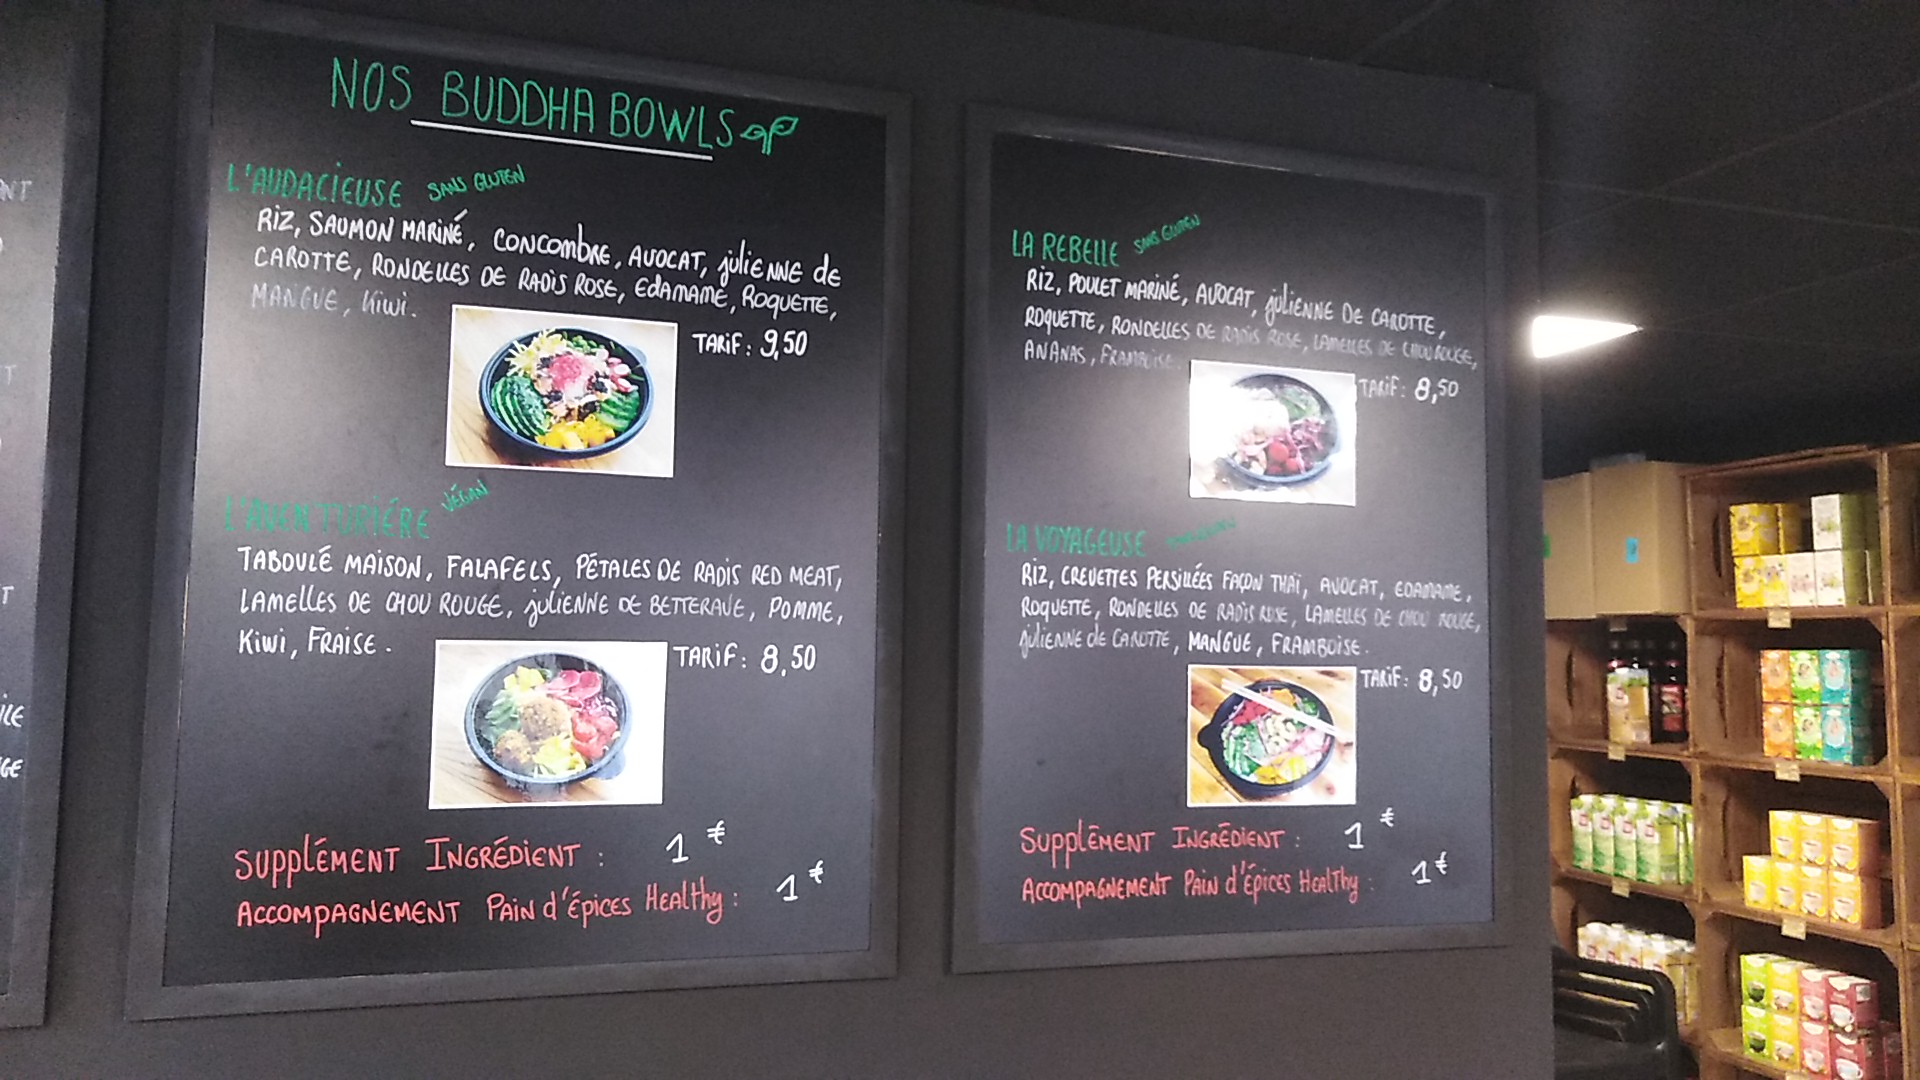 NOS BUDDHA BOWLS
L'AUDACIEUSE SANS GLUTEN
RIZ, SAUMON MARINÉ, CONCOMBRE, AVOCAT, JULIENNE DE
CAROTTE, RONDELLES DE RADIS ROSE, EDAMAME, ROQUETTE,
MANGUE, KIWI.
TARIF : 9,50
L'AVENTURIÉRE VÉGAN
TABOULÉ MAISON, FALAFELS, PÉTALES DE RADIS RED MEAT,
LAMELLES DE CHOU ROUGE, JULIENNE DE BETTERAVE, POMME,
KIWI, FRAISE.
TARIF : 8,50
SUPPLÉMENT INGRÉDIENT : 1 €
ACCOMPAGNEMENT PAIN d'ÉPICES HEALTHY : 1 €
LA REBELLE SANS GLUTEN
RIZ, POULET MARINÉ, AVOCAT, JULIENNE DE CAROTTE,
ROQUETTE, RONDELLES DE RADIS ROSE, LAMELLES DE CHOU ROUGE,
ANANAS, FRAMBOISE.
TARIF : 8,50
LA VOYAGEUSE
RIZ, CREVETTES PERSILLÉES FAÇON THAÏ, AVOCAT, EDAMAME,
ROQUETTE, RONDELLES DE RADIS ROSE, LAMELLES DE CHOU ROUGE,
JULIENNE DE CAROTTE, MANGUE, FRAMBOISE.
TARIF : 8,50
SUPPLÉMENT INGRÉDIENT : 1 €
ACCOMPAGNEMENT PAIN d'ÉPICES HEALTHY : 1 €